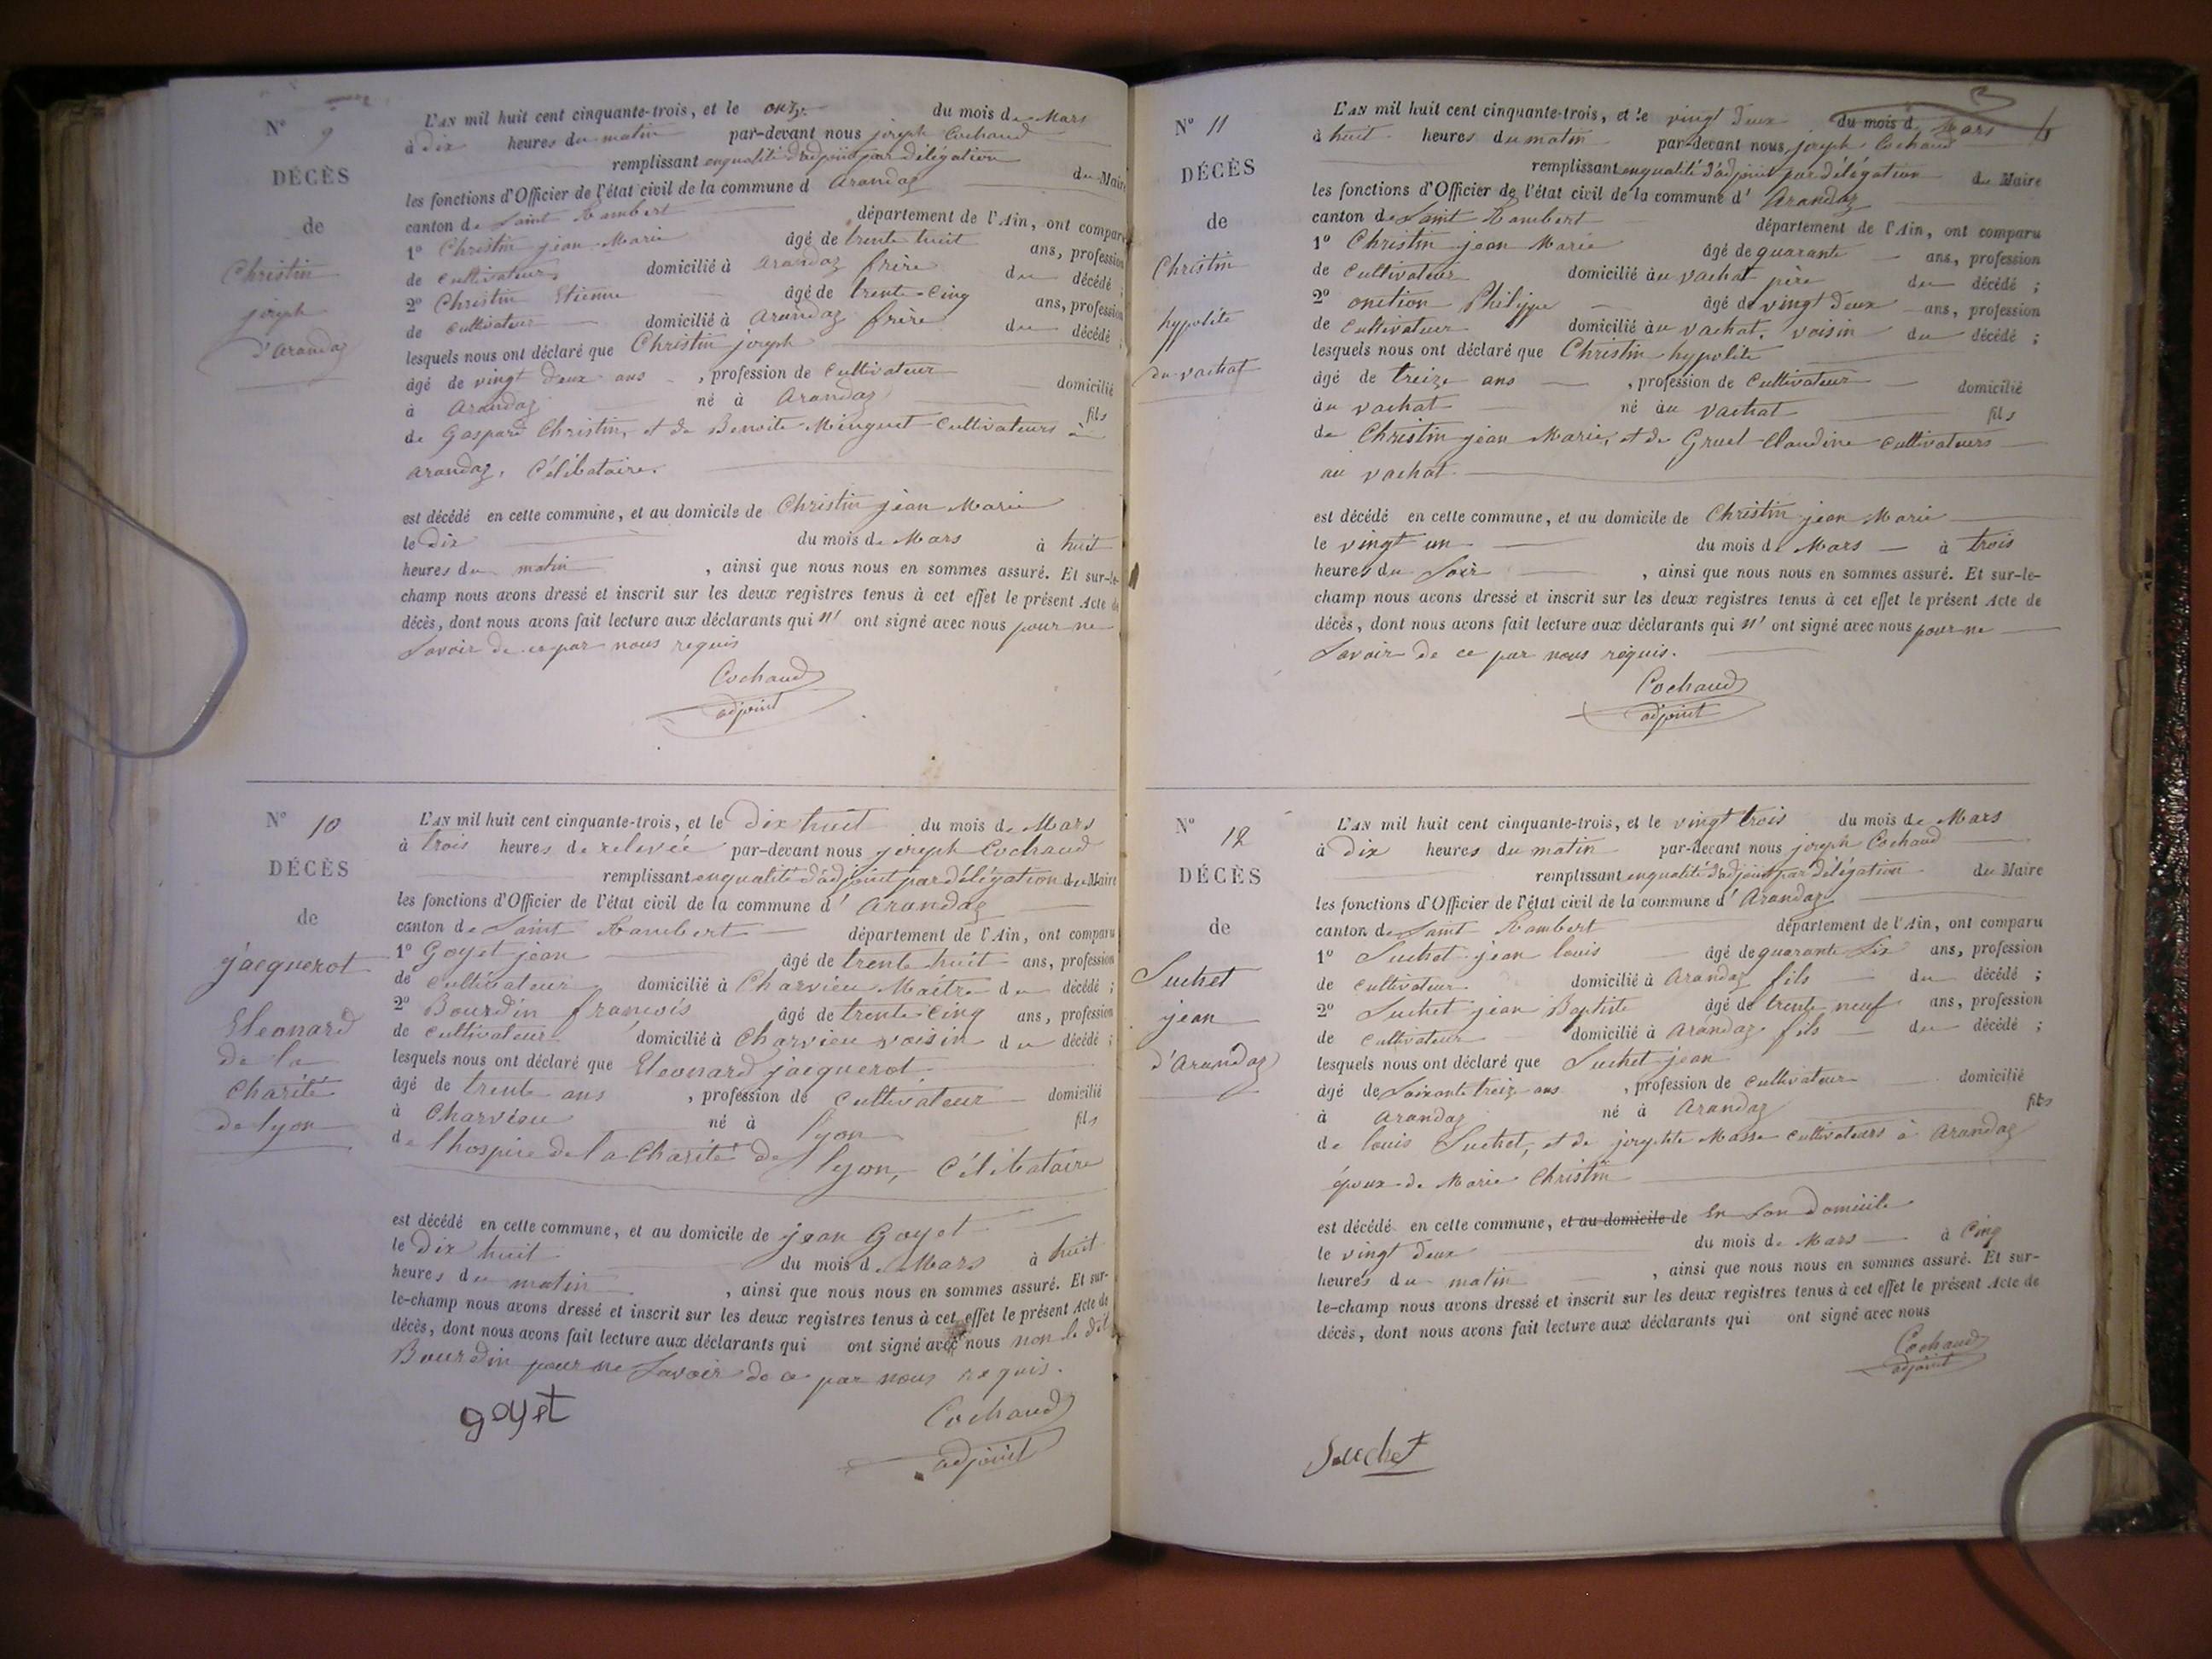 N° 9
DÉCÈS
de
Christin
joseph
d'arandaz
L'AN mil huit cent cinquante-trois, et le onze du mois de Mars
à dix heures du matin par-devant nous joseph Cochaud
remplissant en qualité d'adjoint par délégation du Maire
les fonctions d'Officier de l'état civil de la commune d arandaz
canton de Saint Rambert département de l'Ain, ont comparu
1° Christin jean Marie âgé de trente huit ans, profession
de cultivateur domicilié à arandaz frère du décédé ;
2° Christin Etienne âgé de trente-cinq ans, profession
de cultivateur domicilié à arandaz frère du décédé ;
lesquels nous ont déclaré que Christin joseph
âgé de vingt deux ans , profession de cultivateur domicilié
à arandaz né à arandaz fils
de Gaspard Christin, et de Benoite Minguet cultivateurs à
arandaz. Célibataire.
est décédé en cette commune, et au domicile de Christin jean Marie
le dix du mois de Mars à huit
heures du matin , ainsi que nous nous en sommes assuré. Et sur-le-
champ nous avons dressé et inscrit sur les deux registres tenus à cet effet le présent Acte de
décès, dont nous avons fait lecture aux déclarants qui n' ont signé avec nous pour ne
Savoir de ce par nous requis
Cochaud
adjoint
N° 10
DÉCÈS
de
jacquerot
Eleonard
de la
Charité
de lyon
L'AN mil huit cent cinquante-trois, et le dix huit du mois de Mars
à trois heures de relevée par-devant nous joseph Cochaud
remplissant en qualité d'adjoint par délégation du Maire
les fonctions d'Officier de l'état civil de la commune d' arandaz
canton de Saint Rambert département de l'Ain, ont comparu
1° Goyet jean âgé de trente huit ans, profession
de cultivateur domicilié à Charvieu Maitre du décédé ;
2° Bourdin francois âgé de trente-cinq ans, profession
de cultivateur domicilié à Charvieu voisin du décédé ;
lesquels nous ont déclaré que Eleonard jacquerot
âgé de trente ans , profession de cultivateur domicilié
à Charvieu né à lyon fils
de l'hospice de la Charité de lyon, Célibataire
est décédé en cette commune, et au domicile de jean Goyet
le dix huit du mois de Mars à huit
heures du matin , ainsi que nous nous en sommes assuré. Et sur-
le-champ nous avons dressé et inscrit sur les deux registres tenus à cet effet le présent Acte de
décès, dont nous avons fait lecture aux déclarants qui ont signé avec nous non le dit
Bourdin pour ne Savoir de ce par nous requis.
goyet
Cochaud
adjoint
N° 11
DÉCÈS
de
Christin
hypolite
du vachat
L'AN mil huit cent cinquante-trois, et le vingt deux du mois de Mars
à huit heures du matin par-devant nous joseph Cochaud
remplissant en qualité d'adjoint par délégation du Maire
les fonctions d'Officier de l'état civil de la commune d' Arandaz
canton de Saint Rambert département de l'Ain, ont comparu
1° Christin jean Marie âgé de quarante ans, profession
de cultivateur domicilié au vachat père du décédé ;
2° Philippe âgé de vingt deux ans, profession
de cultivateur domicilié au vachat, voisin du décédé ;
lesquels nous ont déclaré que Christin hypolite
âgé de treize ans , profession de cultivateur domicilié
au vachat né au vachat fils
de Christin jean Marie, et de Gruel Claudine cultivateurs
au vachat.
est décédé en cette commune, et au domicile de Christin jean Marie
le vingt un du mois de Mars à trois
heures du Soir , ainsi que nous nous en sommes assuré. Et sur-le-
champ nous avons dressé et inscrit sur les deux registres tenus à cet effet le présent Acte de
décès, dont nous avons fait lecture aux déclarants qui n' ont signé avec nous pour ne
Savoir de ce par nous requis.
Cochaud
adjoint
N° 12
DÉCÈS
de
Suchet
jean
d'Arandaz
L'AN mil huit cent cinquante-trois, et le vingt trois du mois de Mars
à dix heures du matin par-devant nous joseph Cochaud
remplissant en qualité d'adjoint par délégation du Maire
les fonctions d'Officier de l'état civil de la commune d' Arandaz
canton de Saint Rambert département de l'Ain, ont comparu
1° Suchet jean louis âgé de quarante Six ans, profession
de cultivateur domicilié à Arandaz fils du décédé ;
2° Suchet jean Baptiste âgé de trente neuf ans, profession
de cultivateur domicilié à Arandaz fils du décédé ;
lesquels nous ont déclaré que Suchet jean
âgé de Soixante treize ans , profession de cultivateur domicilié
à arandaz né à Arandaz fils
de louis Suchet, et de Masse cultivateurs à Arandaz
époux de Marie Christin
est décédé en cette commune, et au domicile de En Son domicile
le vingt deux du mois de Mars à Cinq
heures du matin , ainsi que nous nous en sommes assuré. Et sur-
le-champ nous avons dressé et inscrit sur les deux registres tenus à cet effet le présent Acte de
décès, dont nous avons fait lecture aux déclarants qui ont signé avec nous
Cochaud
adjoint
Suchet